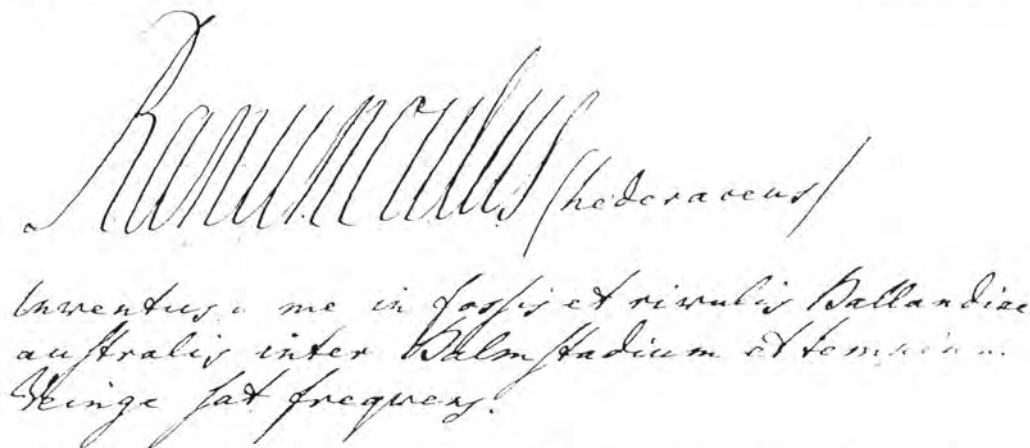 Ranunculus (hederaceus)
Inventus a me in fossis et rivulis Hallandiae
australis inter Halmstadium et templum
Veinge sat freqvens.